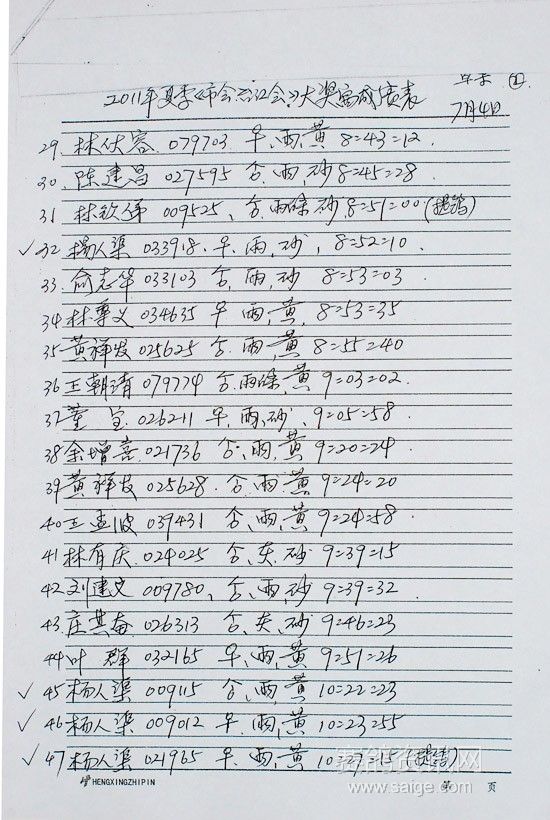 2011年夏季《市会台江会》大奖寓成绩表
7月4日
29 林伙容 079703 早、雨、黄 8=43=12.
30. 陈建昌 027595 合.雨.砂 8=45=28
31 林钦 009525、合.雨绿砂 8=51=00
✓32 杨人渠 033918. 早.雨、砂, 8=52=10.
33. 俞志华 033103 合,雨,砂 8=53=03.
34 林尊义 034635 早 雨,黄. 8=53=35
35 黄祥发 025625 合. 雨,黄 8=55=40
36 王朝清 079774 合.雨绿,黄 9=03=02.
37 董宝 026211 早,雨、砂、9=05=58.
38 余增喜 021736 合、雨、黄 9=20=24.
39 黄祥发 025628. 合、雨、黄 9=24=20
40 王孟波 039431 合、雨、黄 9=24=58.
41 林有庆. 024025 合、灰、砂 9=39=15
42 刘建文 009780、合、雨、砂 9=39=32
43. 庄其 026313 合、灰、砂 9=46=23
44 叶群 032165 早、雨、黄 9=51=26
✓45 杨人渠 009115 合、雨、黄 10=22=23
✓46 杨人渠 009012 早、雨、黄 10=23=55
✓47 杨人渠 021965 早、雨、黄 10=27=15
HENGXINGZHIPIN
第 页
赛鸽资讯网
www.saige.com